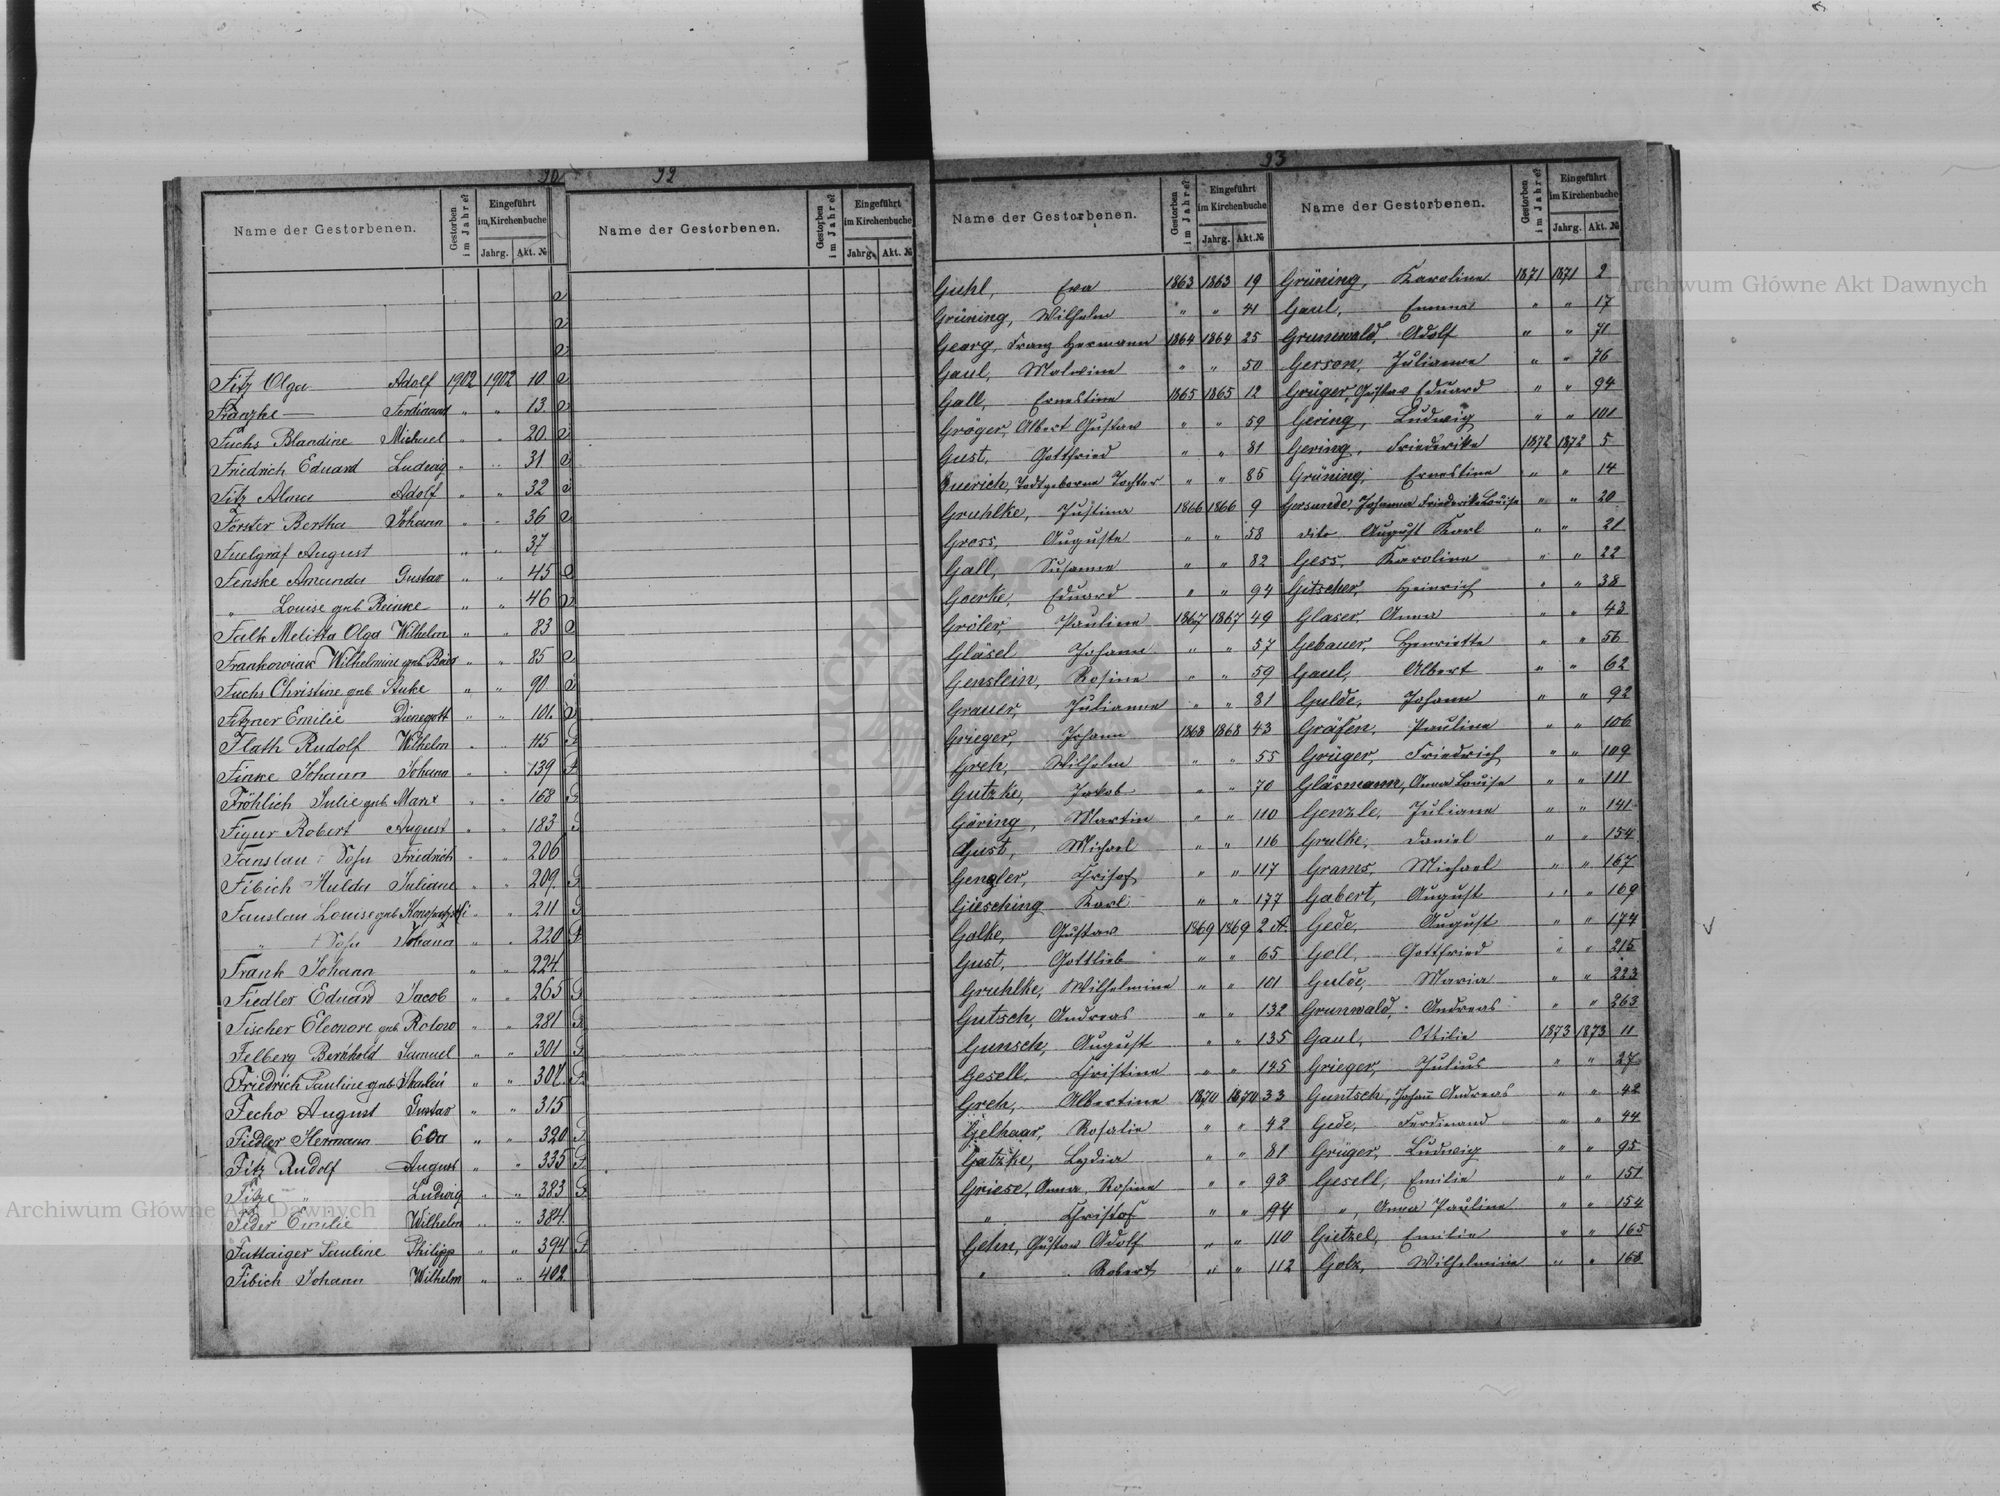 90
Name der Gestorbenen.
Gestorben im Jahre?
Eingeführt im Kirchenbuche
Jahrg. Akt. №
Fitz Olga Adolf 1902 1902 10
Franzke — Ferdinand " " 13
Fuchs Blandine Michael " " 20
Friedrich Eduard Ludwig " " 31
Fitz Alma Adolf " " 32
Förster Bertha Johann " " 36
Fuelgraf August " " 37
Fenske Amanda Gustav " " 45
" Louise geb Reinke " " 46
Falk Melitta Olga Wilhelm " " 83
Frankowiak Wilhelmine geb " " 85
Fuchs Christine geb. " " 90
Fitzner Emilie Dienegott " " 101
Flath Rudolf Wilhelm " " 115
Finke Johann Johann " " 139
Fröhlich Julie geb Marx " " 168
Figur Robert August " " 183
Fanslau Sohn Friedrich " " 206
Fibich Hulda Juliane " " 209
Fanslau Louise geb " " 211
" Sohn Johann " " 220
Frank Johann " " 224
Fiedler Eduard Jacob " " 265
Fischer Eleonore geb. " " 281
Felberg Berthold Samuel " " 301
Friedrich Pauline geb " " 307
Fecho August Gustav " " 315
Fiedler Hermann Eva " " 320
Fitz Rudolf August " " 335
" Ludwig " " 383
Feder Emilie Wilhelm " " 384
Futtaiger Pauline Philipp " " 394
Fibich Johann Wilhelm " " 402
92
Name der Gestorbenen.
Gestorben im Jahre?
Eingeführt im Kirchenbuche
Jahrg. Akt. №
93
Name der Gestorbenen.
Gestorben im Jahre?
Eingeführt im Kirchenbuche
Jahrg. Akt. №
Guhl, Eva 1863 1863 19
Grüning, Wilhelm " " 41
Georg, Franz Hermann 1864 1864 25
Gaul, Malwine " " 50
Gall, Ernestine 1865 1865 12
Gröger, Albert Gustav " " 59
Gust, Gottfried " " 81
Todtgeborne Tochter " " 85
Gruhlke, Justina 1866 1866 9
Gross, Auguste " " 58
Gall, Susanne " " 82
Goerke, Eduard " " 94
Gröler, Pauline 1867 1867 49
Gläsel Johann " " 57
Genslein, Rosine " " 59
Grauer, Julianne " " 81
Grieger, Johann 1868 1868 43
Greh, Wilhelm " " 55
Gutzke, Jakob " " 70
Göring, Martin " " 110
Gust, Michael " " 116
Gengler, Christof " " 117
Giesching Karl " " 177
Golke, Gustav 1869 1869 2 A.
Gust, Gottlieb " " 65
Gruhlke, Wilhelmine " " 101
Gutsch, Andreas " " 132
Gunsch, August " " 135
Gesell, Christine " " 195
Greh, Albertine 1870 1870 33
Gelhaar, Rosalie " " 42
Gatzke, Lydia " " 81
Griese, Anna Rosine " " 93
" Christof " " 94
Gehn, Gustav Adolf " " 110
" Robert " " 112
Name der Gestorbenen.
Gestorben im Jahre?
Eingeführt im Kirchenbuche
Jahrg. Akt. №
Grüning, Karoline 1871 1871 2
Gaul, Emma " " 17
Grunwald, Adolf " " 71
Gerson, Julianne " " 76
Grüger, Gustav Eduard " " 94
Gering, Ludwig " " 101
Gering, Friederike 1872 1872 5
Grüning, Ernestine " " 14
Gersunde, Johanna Friederike Louise " " 20
dito August Karl " " 21
Gess, Karoline " " 22
Gitscher, Heinrich " " 38
Glaser, Anna " " 43
Gebauer, Henriette " " 56
Gaul, Albert " " 62
Gulde, Johann " " 92
Gräfen, Pauline " " 106
Grüger, Friedrich " " 109
Gläsmann, Anna Louise " " 111
Genzle, Juliana " " 141
Grulke, Daniel " " 154
Grams, Michael " " 167
Gabert, August " " 169
Gede, August " " 174
Goll, Gottfried " " 215
Gulde, Maria " " 223
Grunwald, Andreas " " 263
Gaul, Ottilie 1873 1873 11
Grieger, Julius " " 27
Guntsch, Johann Andreas " " 42
Gede, Ferdinand " " 44
Grüger, Ludwig " " 95
Gesell, Emilie " " 151
", Anna Pauline " " 154
Gietzel, Emilie " " 165
Golz, Wilhelmine " " 168
Archiwum Główne Akt Dawnych
Archiwum Główne Akt Dawnych